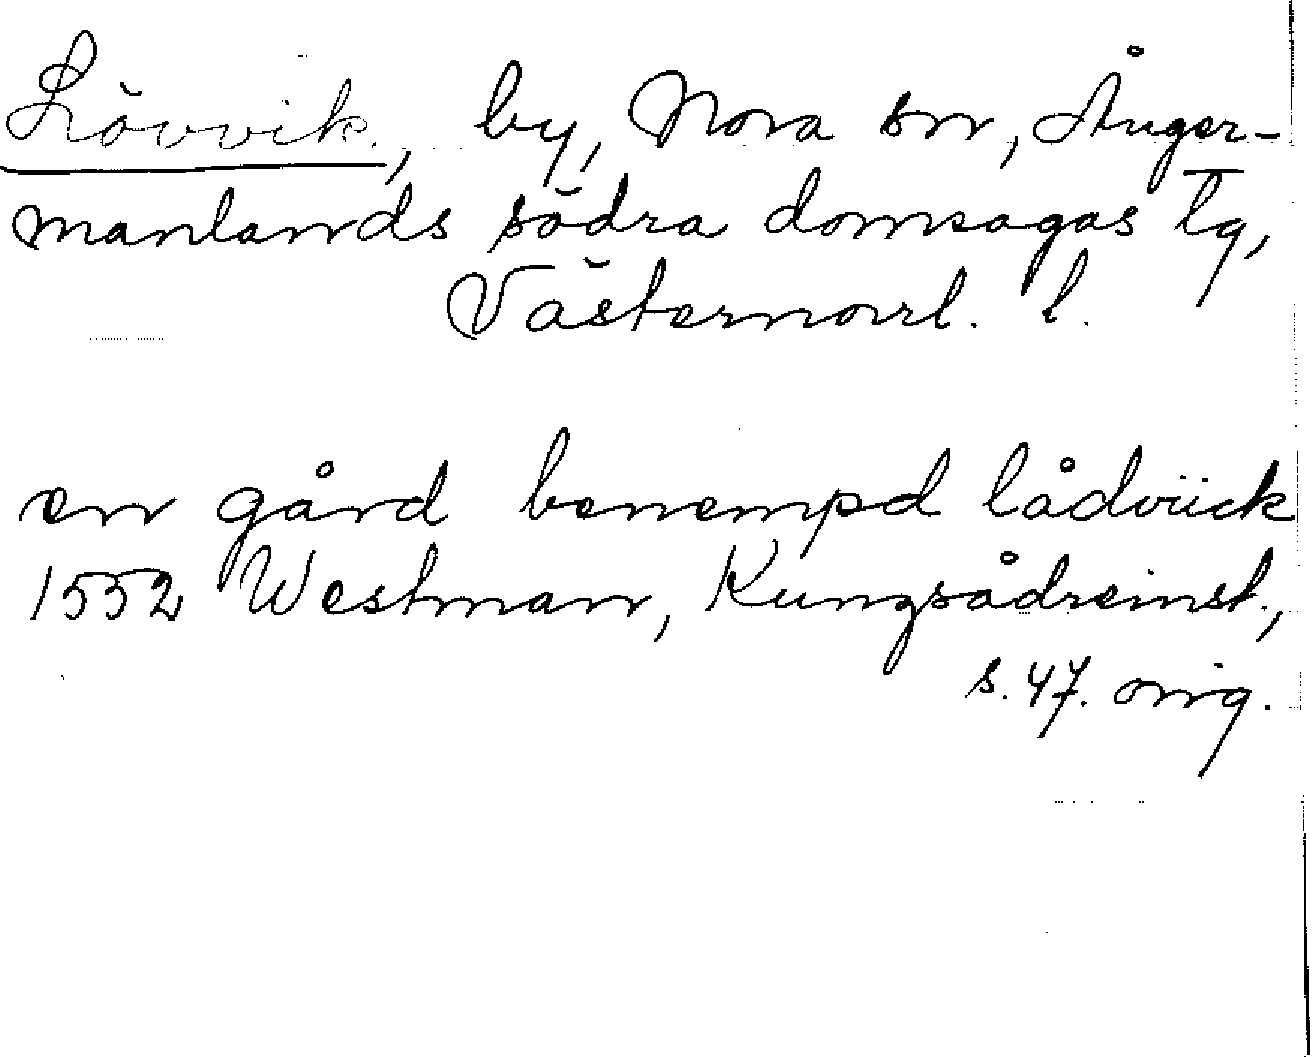 Lövvik, by, Nora sn, Ånger-
manlands södra domsagas tg,
Västernorrl. l.
en gård benempd lådvück
1552 Westman, Kungsådreinst.,
s. 47. orig.